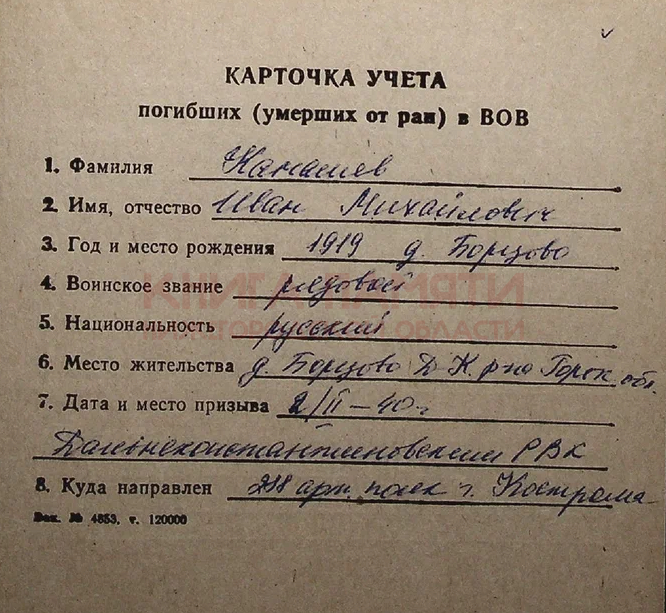 КАРТОЧКА УЧЕТА
погибших (умерших от ран) в ВОВ
1. Фамилия Канашев
2. Имя, отчество Иван Михайлович
3. Год и место рождения 1919 д. Борцово
4. Воинское звание рядовой
КНИГА ПАМЯТИ
5. Национальность русский
НИЖЕГОРОДСКОЙ ОБЛАСТИ
6. Место жительства д. Борцово Д-К. р-на Горьк. обл.
7. Дата и место призыва 2/II-40 г
Дальнеконстантиновским РВК
8. Куда направлен арт. полк г. Кострома
Зак. № 4853, т. 120000